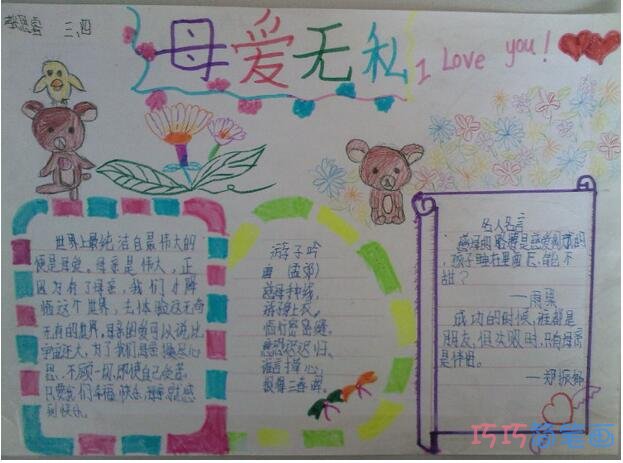 三、四
母爱无私
I Love you!
世界上最纯洁自最伟大的
便是母爱。母亲是伟大,正
因为有了母亲,我们才解
悟这个世界,去体验这无奇
无有的世界,母亲的爱可以说比
宇宙还大,为了我们
思,不顾一切,即使自己受苦
只要我们幸福快乐,母亲就感
到快乐。
游子吟
唐(孟郊)
慈母手中线,
游子身上衣,
临行密密缝,
意恐迟迟归,
报得三春晖。
名人名言
慈母的胳膊是慈爱构成的
,孩子睡在里面
甜?
——雨果
成功的时候,谁都是
朋友,但失败时,只有母亲
是伴侣。
——郑振铎
巧巧简笔画